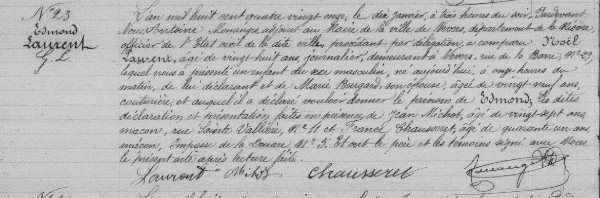 N° 23
Edmond
Laurent
G. L.
L'an mil huit cent quatre vingt onze, le dix janvier, à trois heures du soir, Pardevant
Nous Antoine Monange adjoint au Maire de la ville de Nevers, département de la Nièvre,
officier de l'Etat civil de la dite ville, procédant par délégation, a comparu Noël
Laurent, âgé de vingt huit ans, journalier, demeurant à Nevers, rue de la Barre, N° 29,
lequel nous a présenté un enfant du sexe masculin, né aujourd'hui, à onze heures du
matin, de lui déclarant et de Marie Burgard, son épouse, âgée de vingt neuf ans,
couturière, et auquel il a déclaré vouloir donner le prénom de Edmond, les dites
déclaration et présentation faites en présence de Jean Michot, âgé de vingt sept ans,
maçon, rue Sainte Vallière, N° 11 et France Chausseret, âgé de quarante un ans,
maçon, Impasse de la Louare N° 3. Et ont le père et les témoins signé avec Nous
le présent acte après lecture faite.
Laurent Michot Chausseret Monange